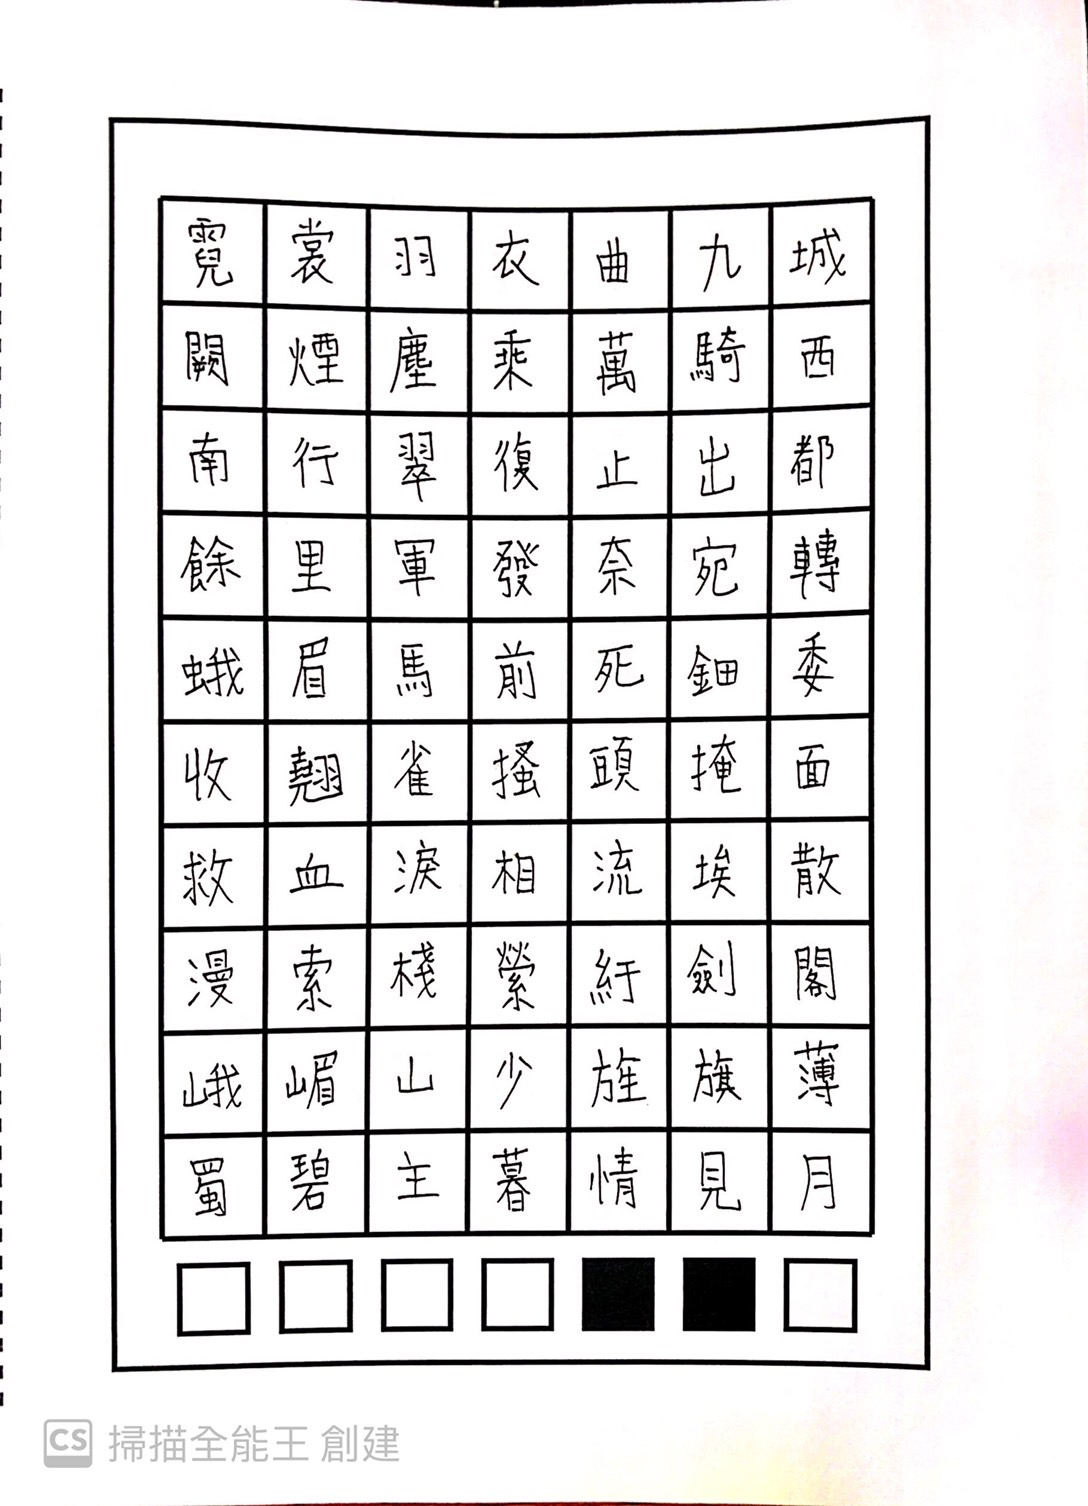 霓裳羽衣曲九城
闕煙塵乘萬騎西
南行翠復止出都
餘里軍發奈宛轉
蛾眉馬前死鈿委
收翹雀搔頭掩面
救血淚相流埃散
漫索棧縈紆劍閣
峨嵋山少旌旗薄
蜀碧主暮情見月
CS 掃描全能王 創建